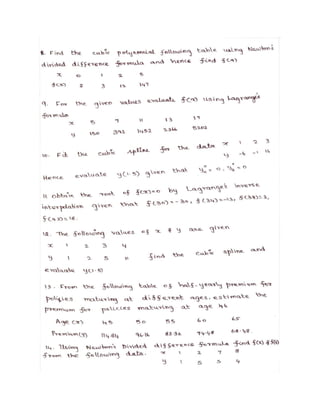 8. Find the cubic polynomial following table using Newton's
divided difference formula and hence find f(4)
x 0 1 2 5
f(x) 2 3 12 147
9. For the given values evaluate f(9) using Lagrange's
formula
x 5 7 11 13 17
y 150 392 1452 2366 5202
10. Fit the cubic spline for the data x 1 2 3
y -6 -1 16
Hence evaluate y(1.5) given that y₀″ = 0, y₂″ = 0
11 Obtain the root of f(x)=0 by Lagrange's inverse
interpolation given that f(30) = -30, f(34) = -13, f(38)=3,
f(42)=18.
12. The following values of x & y are given
x 1 2 3 4
y 1 2 5 11 find the cubic spline and
evaluate y(1.5)
13. From the following table of half-yearly premium for
policies maturing at different ages, estimate the
premium for policies maturing at age 46
Age (x) 45 50 55 60 65
Premium(y) 114.84 96.16 83.32 74.48 68.48
14. Using Newton's Divided difference formula find f(x) & f(6)
from the following data. x 1 2 7 8
y 1 5 5 4